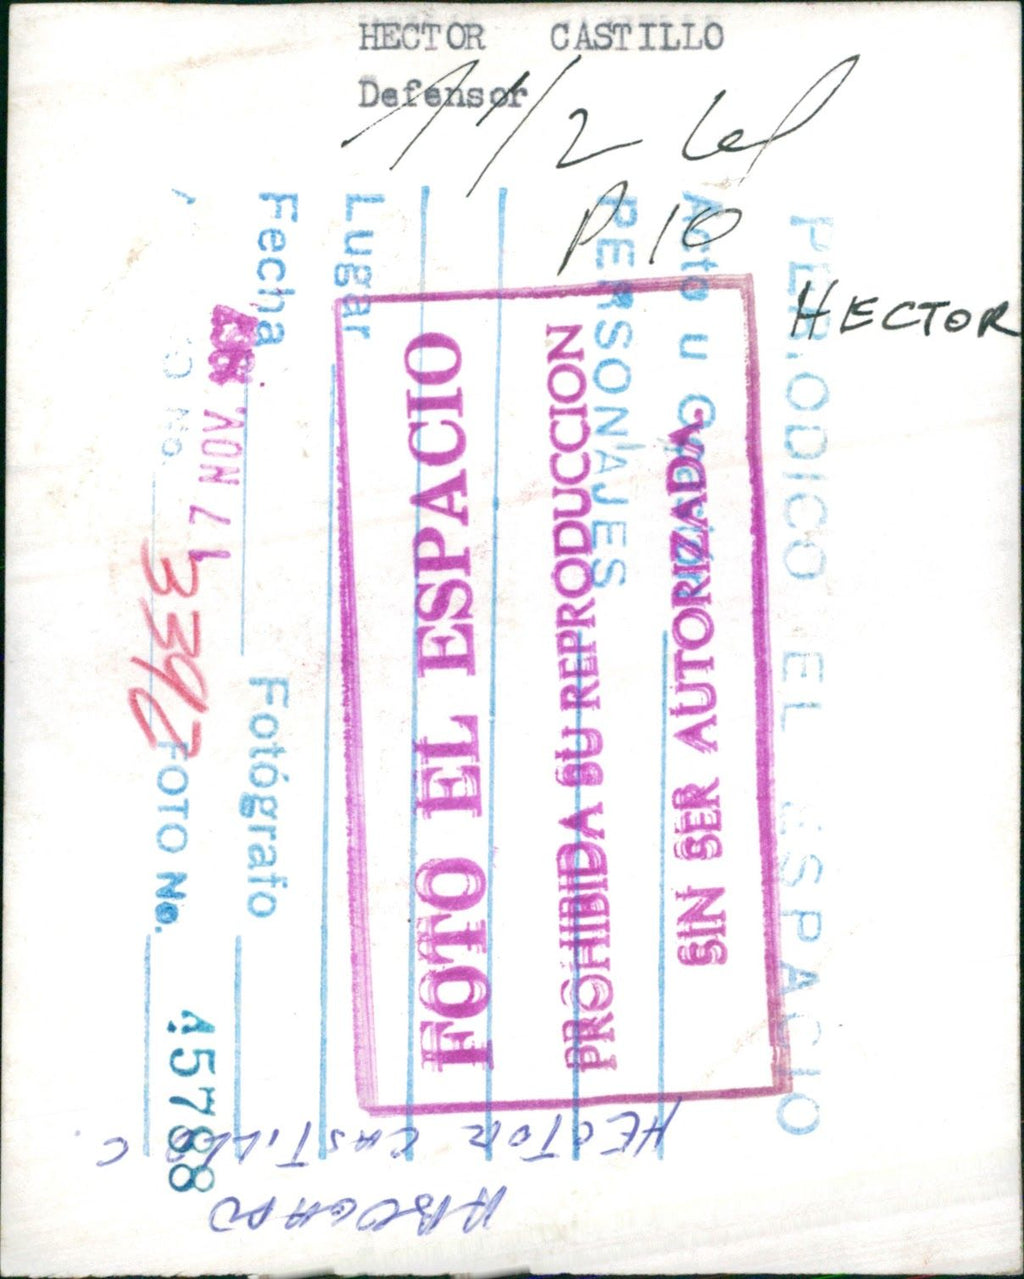 HECTOR CASTILLO
Defensor
1 1/2 col
P. 10
HECTOR
PERIODICO EL ESPACIO
Acto u
PERSONAJES
Lugar
Fecha
Fotógrafo
No.
FOTO No. 45788
FOTO EL ESPACIO
PROHIBIDA SU REPRODUCCION
SIN SER AUTORIZADA
NOV 71
3392
HECTOR CASTILLO C.
ABOGADO